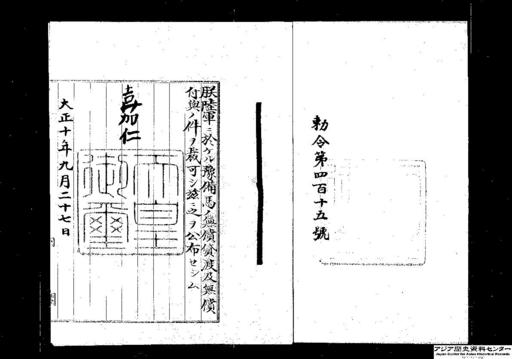 勅令第四百十五號
朕陸軍ニ於ケル豫備馬ノ無償貸渡及無償
付與ノ件ヲ裁可シ茲ニ之ヲ公布セシム
嘉仁
天皇
御璽
大正十年九月二十七日
アジア歴史資料センター
Japan Center for Asian Historical Records